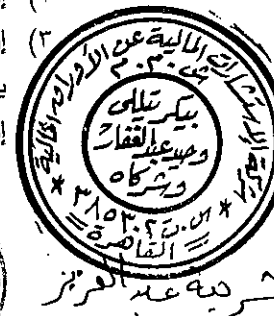 (٣
شركة الاستشارات المالية عن الأوراق المالية
ش.م.م
بيكر تيللى
وحيد عبد الغفار
وشركاه
س.ت ٣٨٥٣٠٢
القاهرة
عبد العزيز